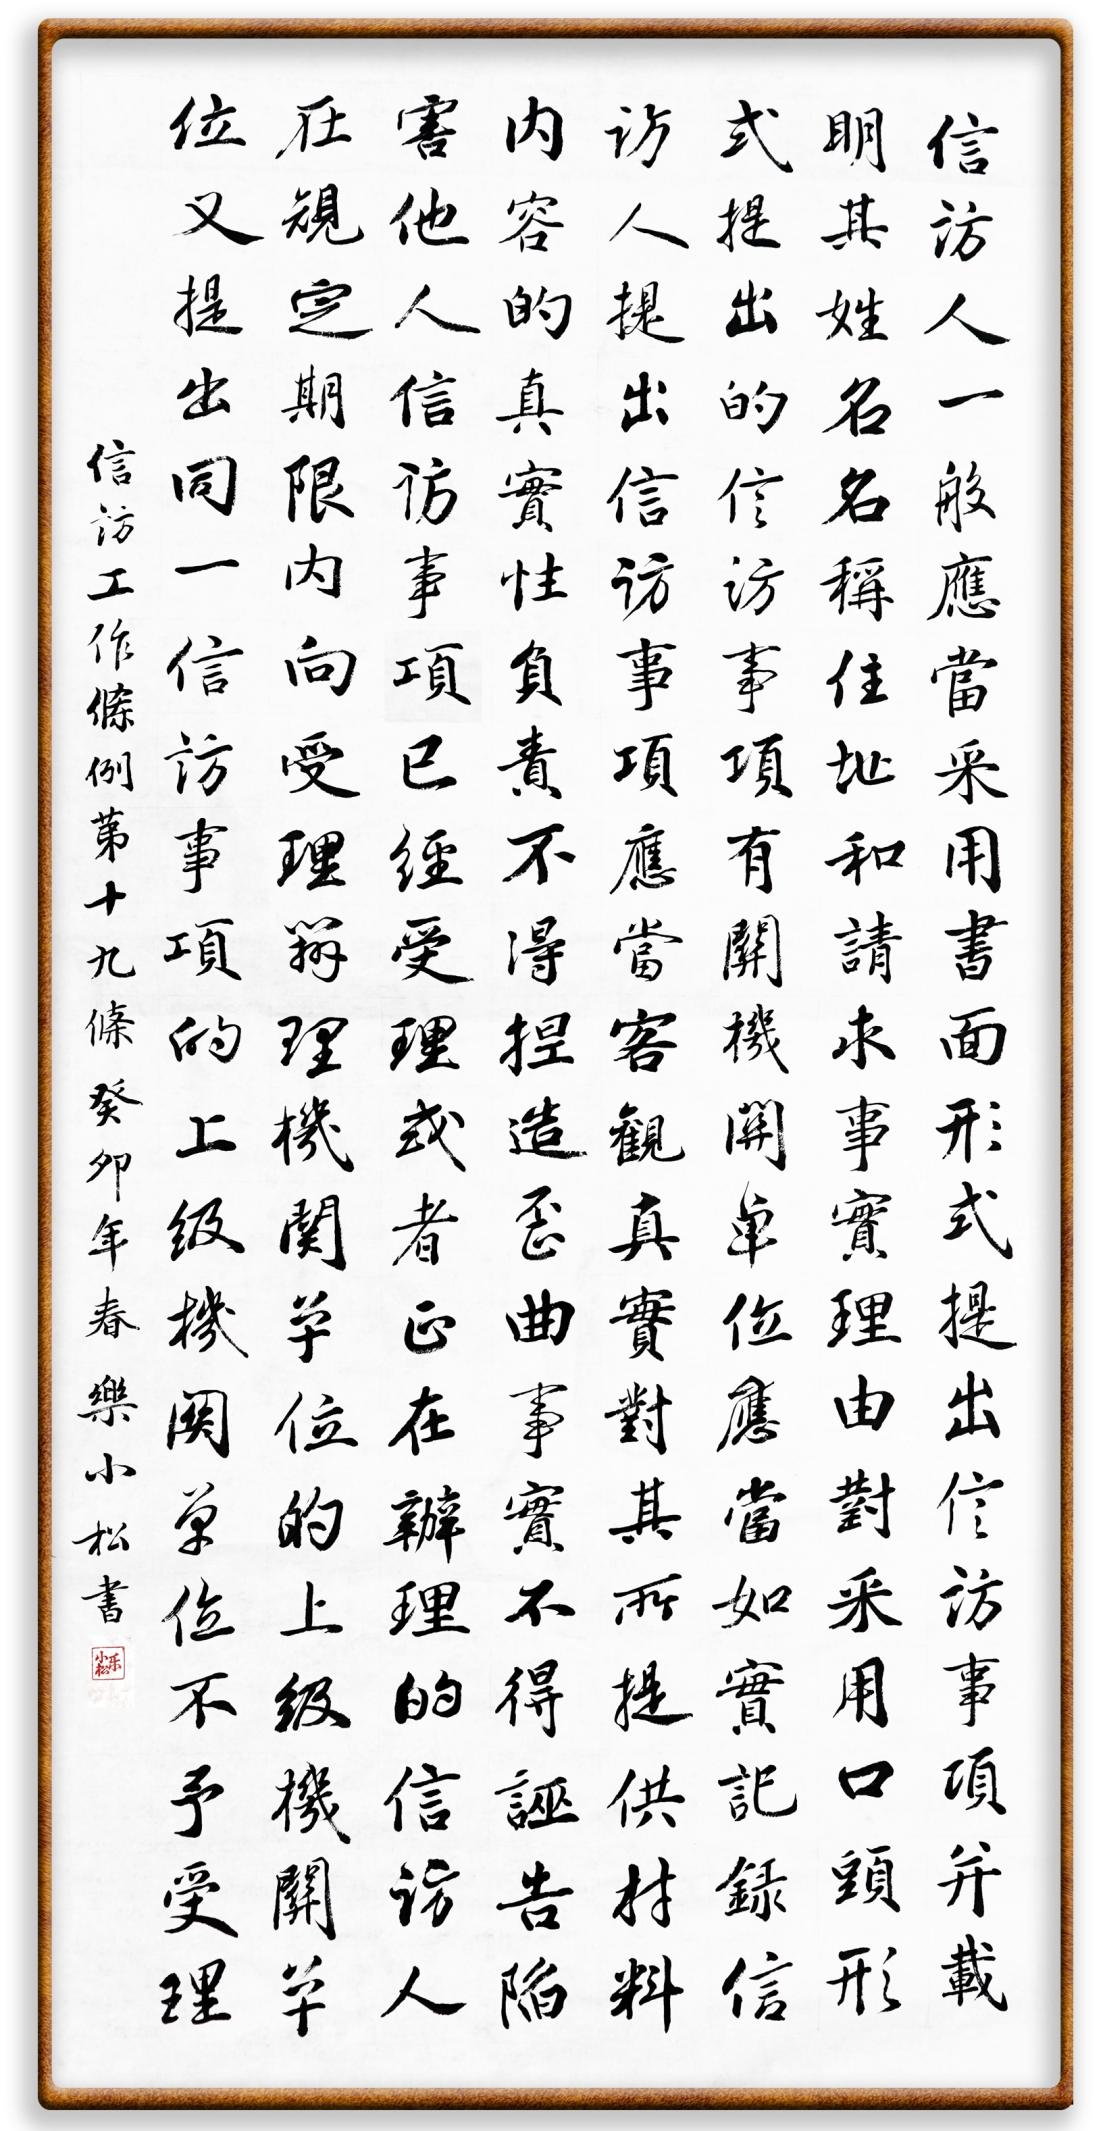 信訪人一般應當采用書面形式提出信訪事項并載
明其姓名名稱住址和請求事實理由對采用口頭形
式提出的信訪事項有關機関单位應當如實記録信
訪人提出信訪事項應當客觀真實對其所提供材料
内容的真實性負責不得捏造歪曲事實不得誣告陷
害他人信訪事項已經受理或者正在辦理的信訪人
在規定期限内向受理辦理機関单位的上级機關单
位又提出同一信訪事項的上级機関单位不予受理
信訪工作條例第十九條癸卯年春樂小松書
乐小松